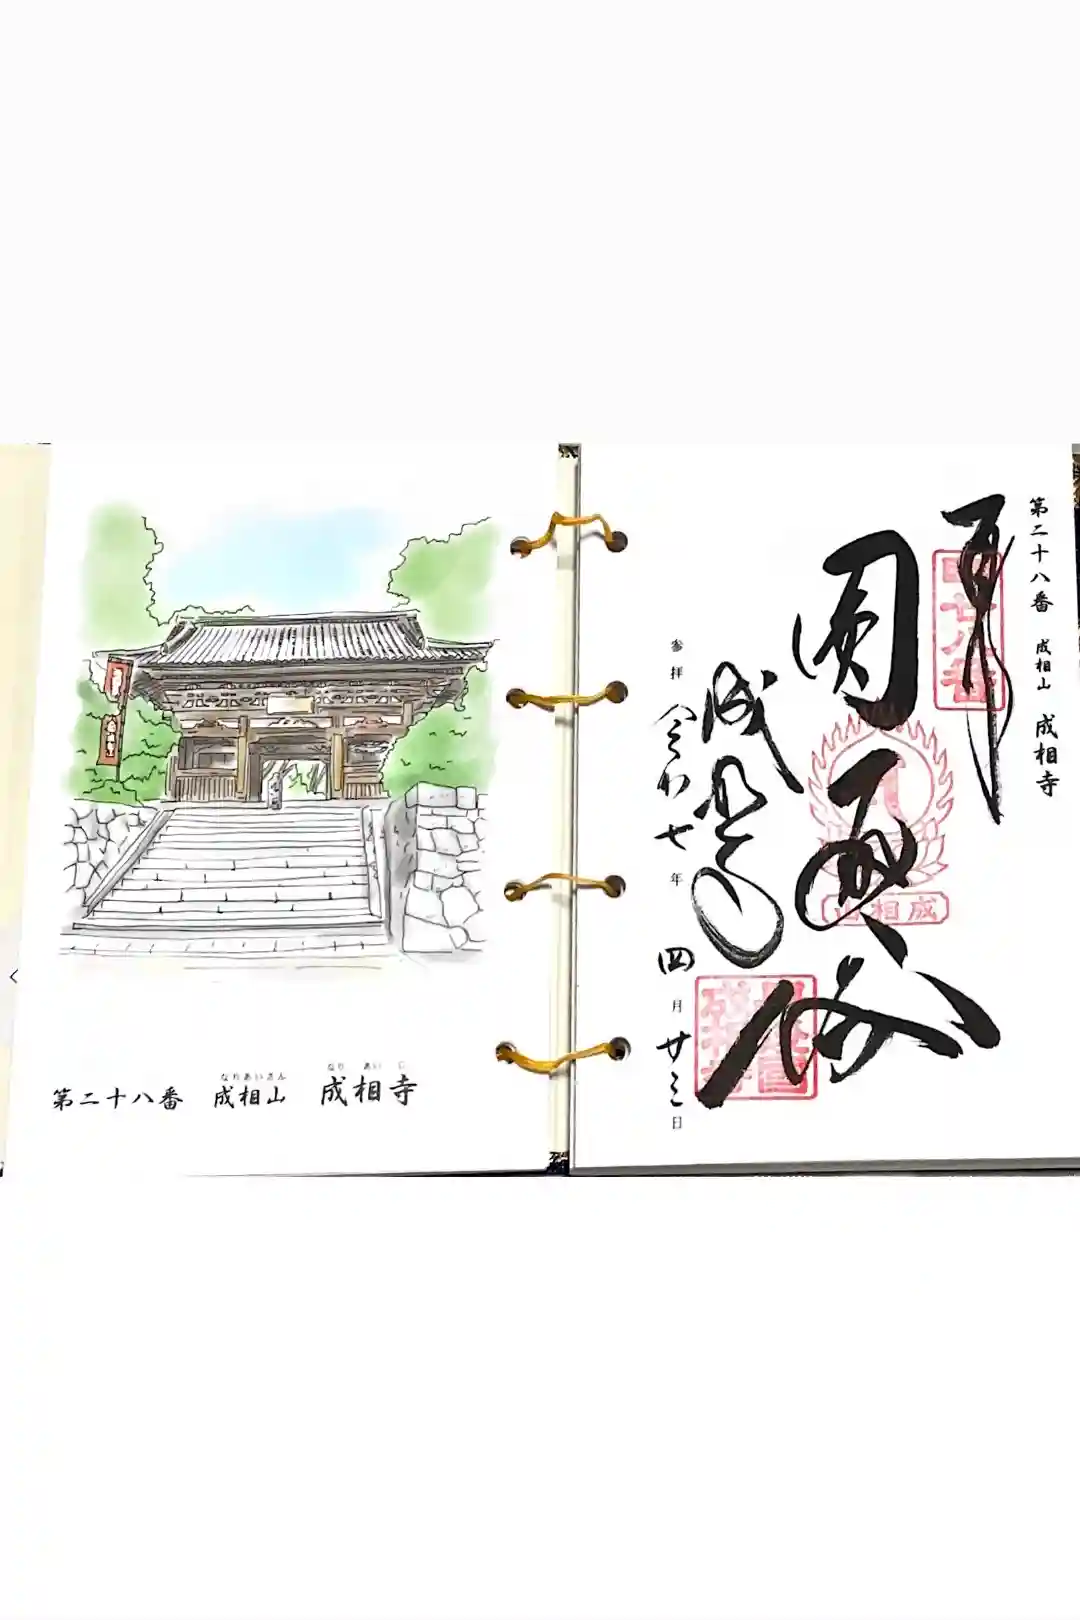 なりあいさん なりあいじ
第二十八番 成相山 成相寺
第二十八番 成相山 成相寺
奉拝
廿八番
成相山
成相寺
参拝 令和七年 四月 廿三日